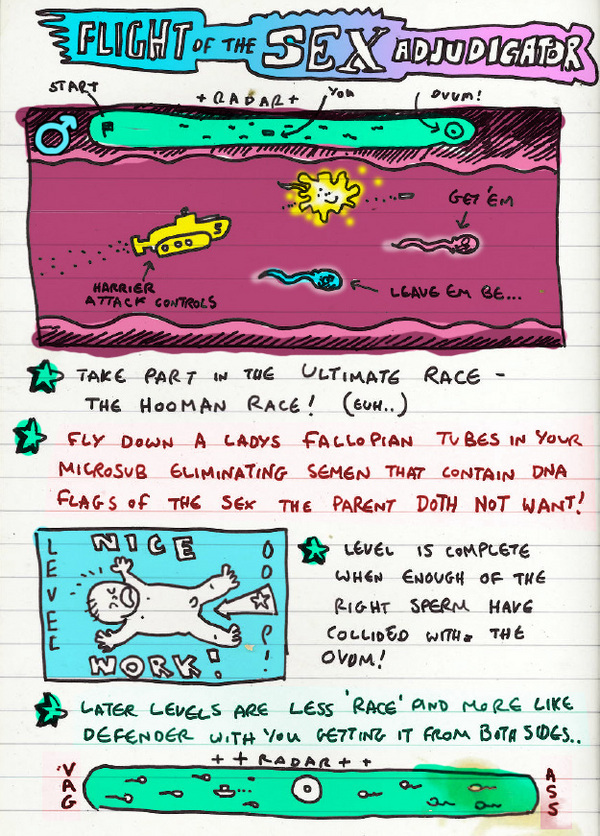 FLIGHT OF THE SEX ADJUDICATOR
START
+ RADAR +
YOU
OVUM!
GET 'EM
S
HARRIER
ATTACK CONTROLS
LEAVE EM BE...
TAKE PART IN THE ULTIMATE RACE -
THE HOOMAN RACE! (EUH..)
FLY DOWN A LADYS FALLOPIAN TUBES IN YOUR
MICROSUB ELIMINATING SEMEN THAT CONTAIN DNA
FLAGS OF THE SEX THE PARENT DOTH NOT WANT!
LEVEL
NICE
WORK!
LEVEL IS COMPLETE
WHEN ENOUGH OF THE
RIGHT SPERM HAVE
COLLIDED WITH THE
OVUM!
LATER LEVELS ARE LESS 'RACE' AND MORE LIKE
DEFENDER WITH YOU GETTING IT FROM BOTH SIDES..
+ + RADAR + +
VAG
ASS